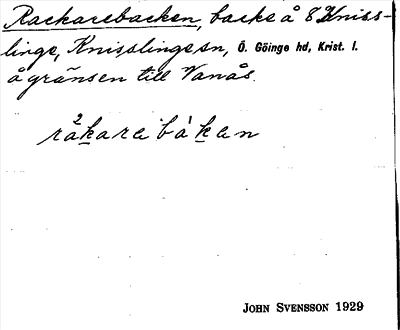 Rackarebacken, backe å 8 Kniss-
linge, Knisslinge sn, Ö. Göinge hd, Krist. l.
å gränsen till Vanås.
2
råkarebàken
JOHN SVENSSON 1929